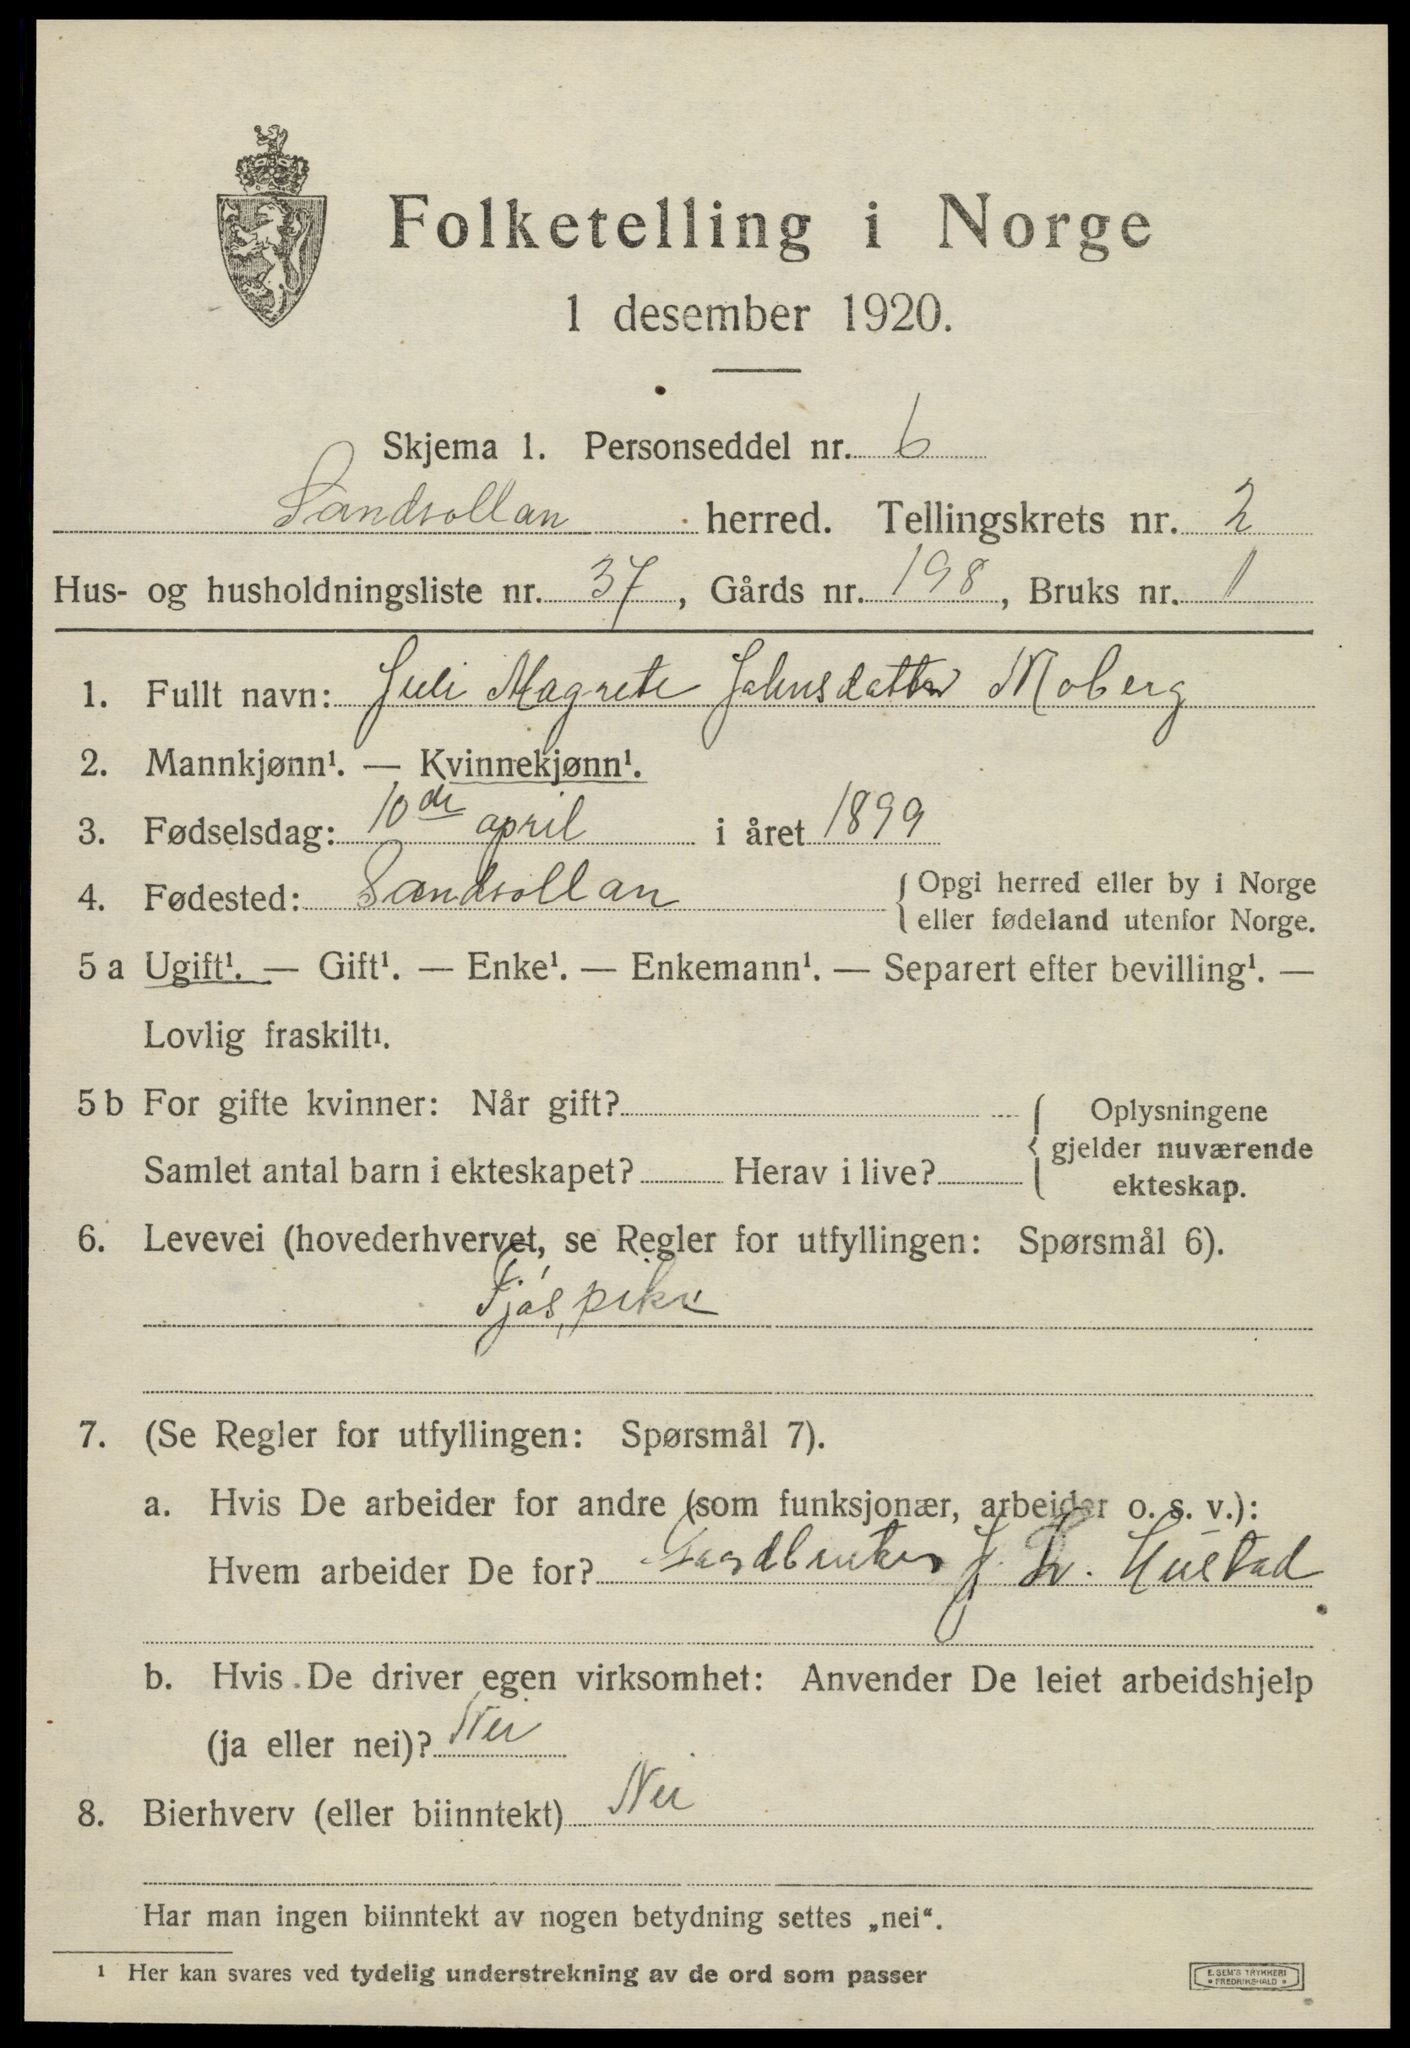 Folketelling i Norge
1 desember 1920.
Skjema 1. Personseddel nr. 6
Sandsollan herred. Tellingskrets nr. 2
Hus- og husholdningsliste nr. 37, Gårds nr. 198, Bruks nr. 1
1. Fullt navn: Juli Magrete Johnsdatter Moberg
2. Mannkjønn¹. — Kvinnekjønn¹.
3. Fødselsdag: 10de april i året 1899
4. Fødested: Sandsollan { Opgi herred eller by i Norge
eller fødeland utenfor Norge.
5 a Ugift¹. — Gift¹. — Enke¹. — Enkemann¹. — Separert efter bevilling¹. —
Lovlig fraskilt¹.
5 b For gifte kvinner: Når gift? Oplysningene
gjelder nuværende
Samlet antal barn i ekteskapet? Herav i live? ekteskap.
6. Levevei (hovederhvervet, se Regler for utfyllingen: Spørsmål 6).
Fjøspike
7. (Se Regler for utfyllingen: Spørsmål 7).
a. Hvis De arbeider for andre (som funksjonær, arbeider o. s. v.):
Hvem arbeider De for? Gaardbruker J. Kr. Hustad
b. Hvis De driver egen virksomhet: Anvender De leiet arbeidshjelp
(ja eller nei)? Nei
8. Bierhverv (eller biinntekt) Nei
Har man ingen biinntekt av nogen betydning settes „nei“.
¹ Her kan svares ved tydelig understrekning av de ord som passer
E. SEM'S TRYKKERI
• FREDRIKSHALD •